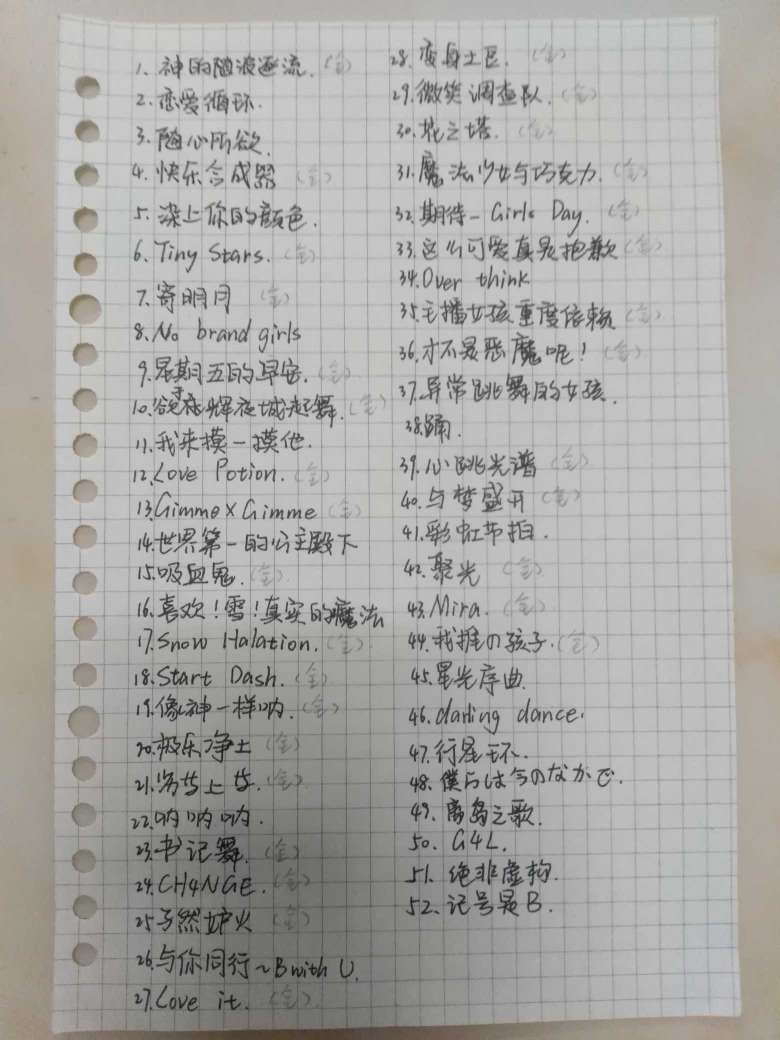 1. 神的随波逐流. (全)
2. 恋爱循环.
3. 随心所欲.
4. 快乐合成器 (全)
5. 染上你的颜色.
6. Tiny Stars. (全)
7. 寄明月 (全)
8. No brand girls
9. 星期五的早安. (全)
10. 欲于辉夜城起舞. (全)
11. 我来摸一摸他.
12. Love Potion. (全)
13. Gimme×Gimme (全)
14. 世界第一的公主殿下
15. 吸血鬼. (全)
16. 喜欢！雪！真实的魔法
17. Snow Halation. (全)
18. Start Dash. (全)
19. 像神一样呐. (全)
20. 极乐净土 (全)
21. 上 (全)
22. 呐呐呐.
23. 书记舞. (全)
24. CH4NGE. (全)
25. 孑然妒火 (全)
26. 与你同行~B with U.
27. Love it. (全)
28. 变身土豆. (全)
29. 微笑调查队. (全)
30. 花之塔. (全)
31. 魔法少女与巧克力. (全)
32. 期待-Girls Day. (全)
33. 这么可爱真是抱歉 (全)
34. Over think
35. 主播女孩重度依赖 (全)
36. 才不是恶魔呢！ (全)
37. 异常跳舞的女孩.
38. 踊.
39. 心跳光谱 (全)
40. 与梦盛开 (全)
41. 彩虹节拍.
42. 聚光 (全)
43. Mira. (全)
44. 我推の孩子. (全)
45. 星光序曲.
46. darling dance.
47. 行星环.
48. 僕らは今のなかで.
49. 离岛之歌.
50. G4L.
51. 绝非虚构.
52. 记号是B.